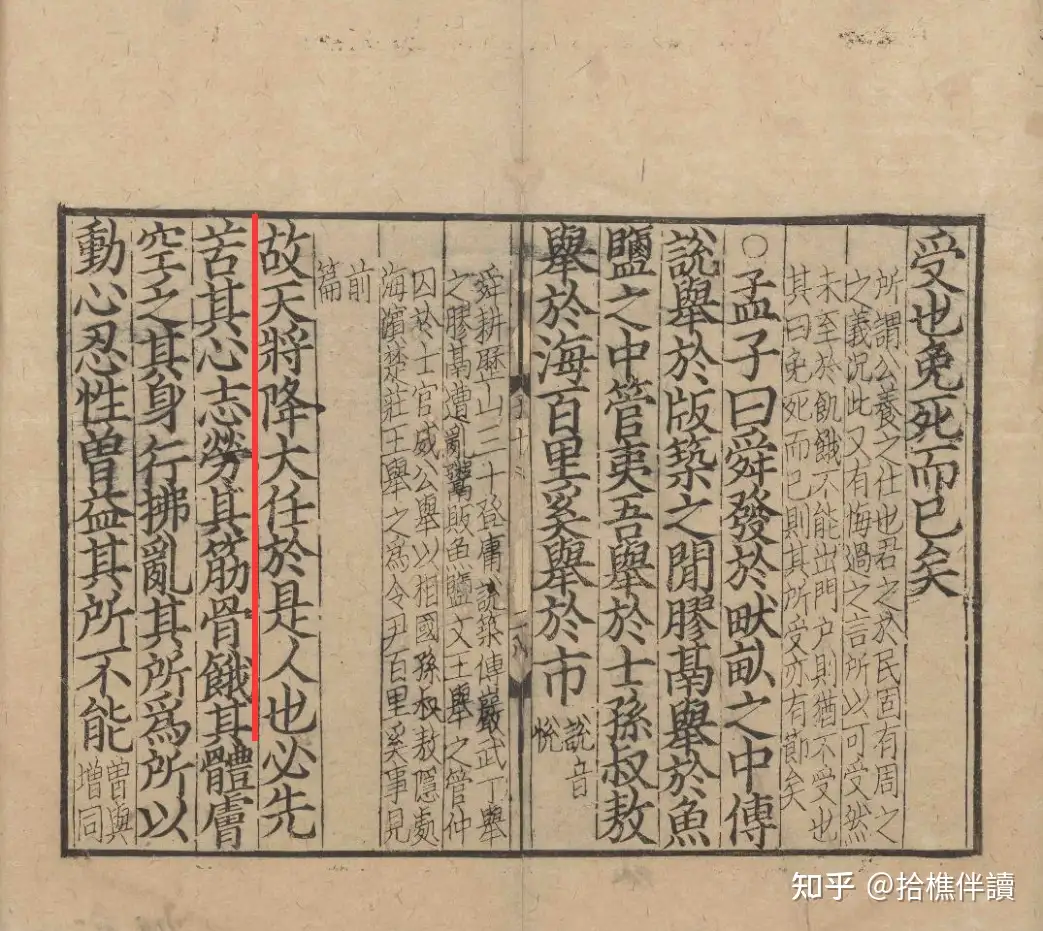 受也免死而已矣
所謂公養之仕也君之於民固有周之
之義況此又有悔過之言所以可受然
未至於飢餓不能出門户則猶不受也
其曰免死而已則其所受亦有節矣
○孟子曰舜發於畎畝之中傅
說舉於版築之閒膠鬲舉於魚
鹽之中管夷吾舉於士孫叔敖
舉於海百里奚舉於市
說音
悅
舜耕歷山三十登庸說築傅巖武丁舉
之膠鬲遭亂鬻販魚鹽文王舉之管仲
囚於士官威公舉以相國孫叔敖隱處
海濱楚莊王舉之為令尹百里奚事見
前
篇
故天將降大任於是人也必先
苦其心志勞其筋骨餓其體膚
空乏其身行拂亂其所為所以
動心忍性曾益其所不能
曾與
增同
知乎 @拾樵伴讀